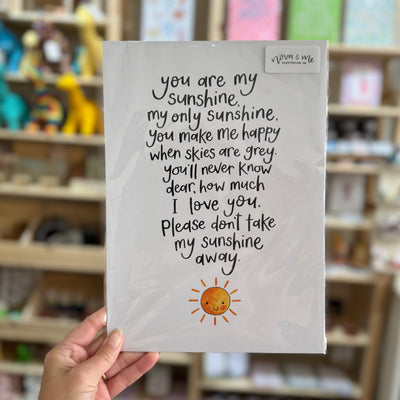 Nova & me
you are my
sunshine,
my only sunshine.
you make me happy
when skies are grey.
you'll never know
dear, how much
I love you.
Please don't take
my sunshine
away.